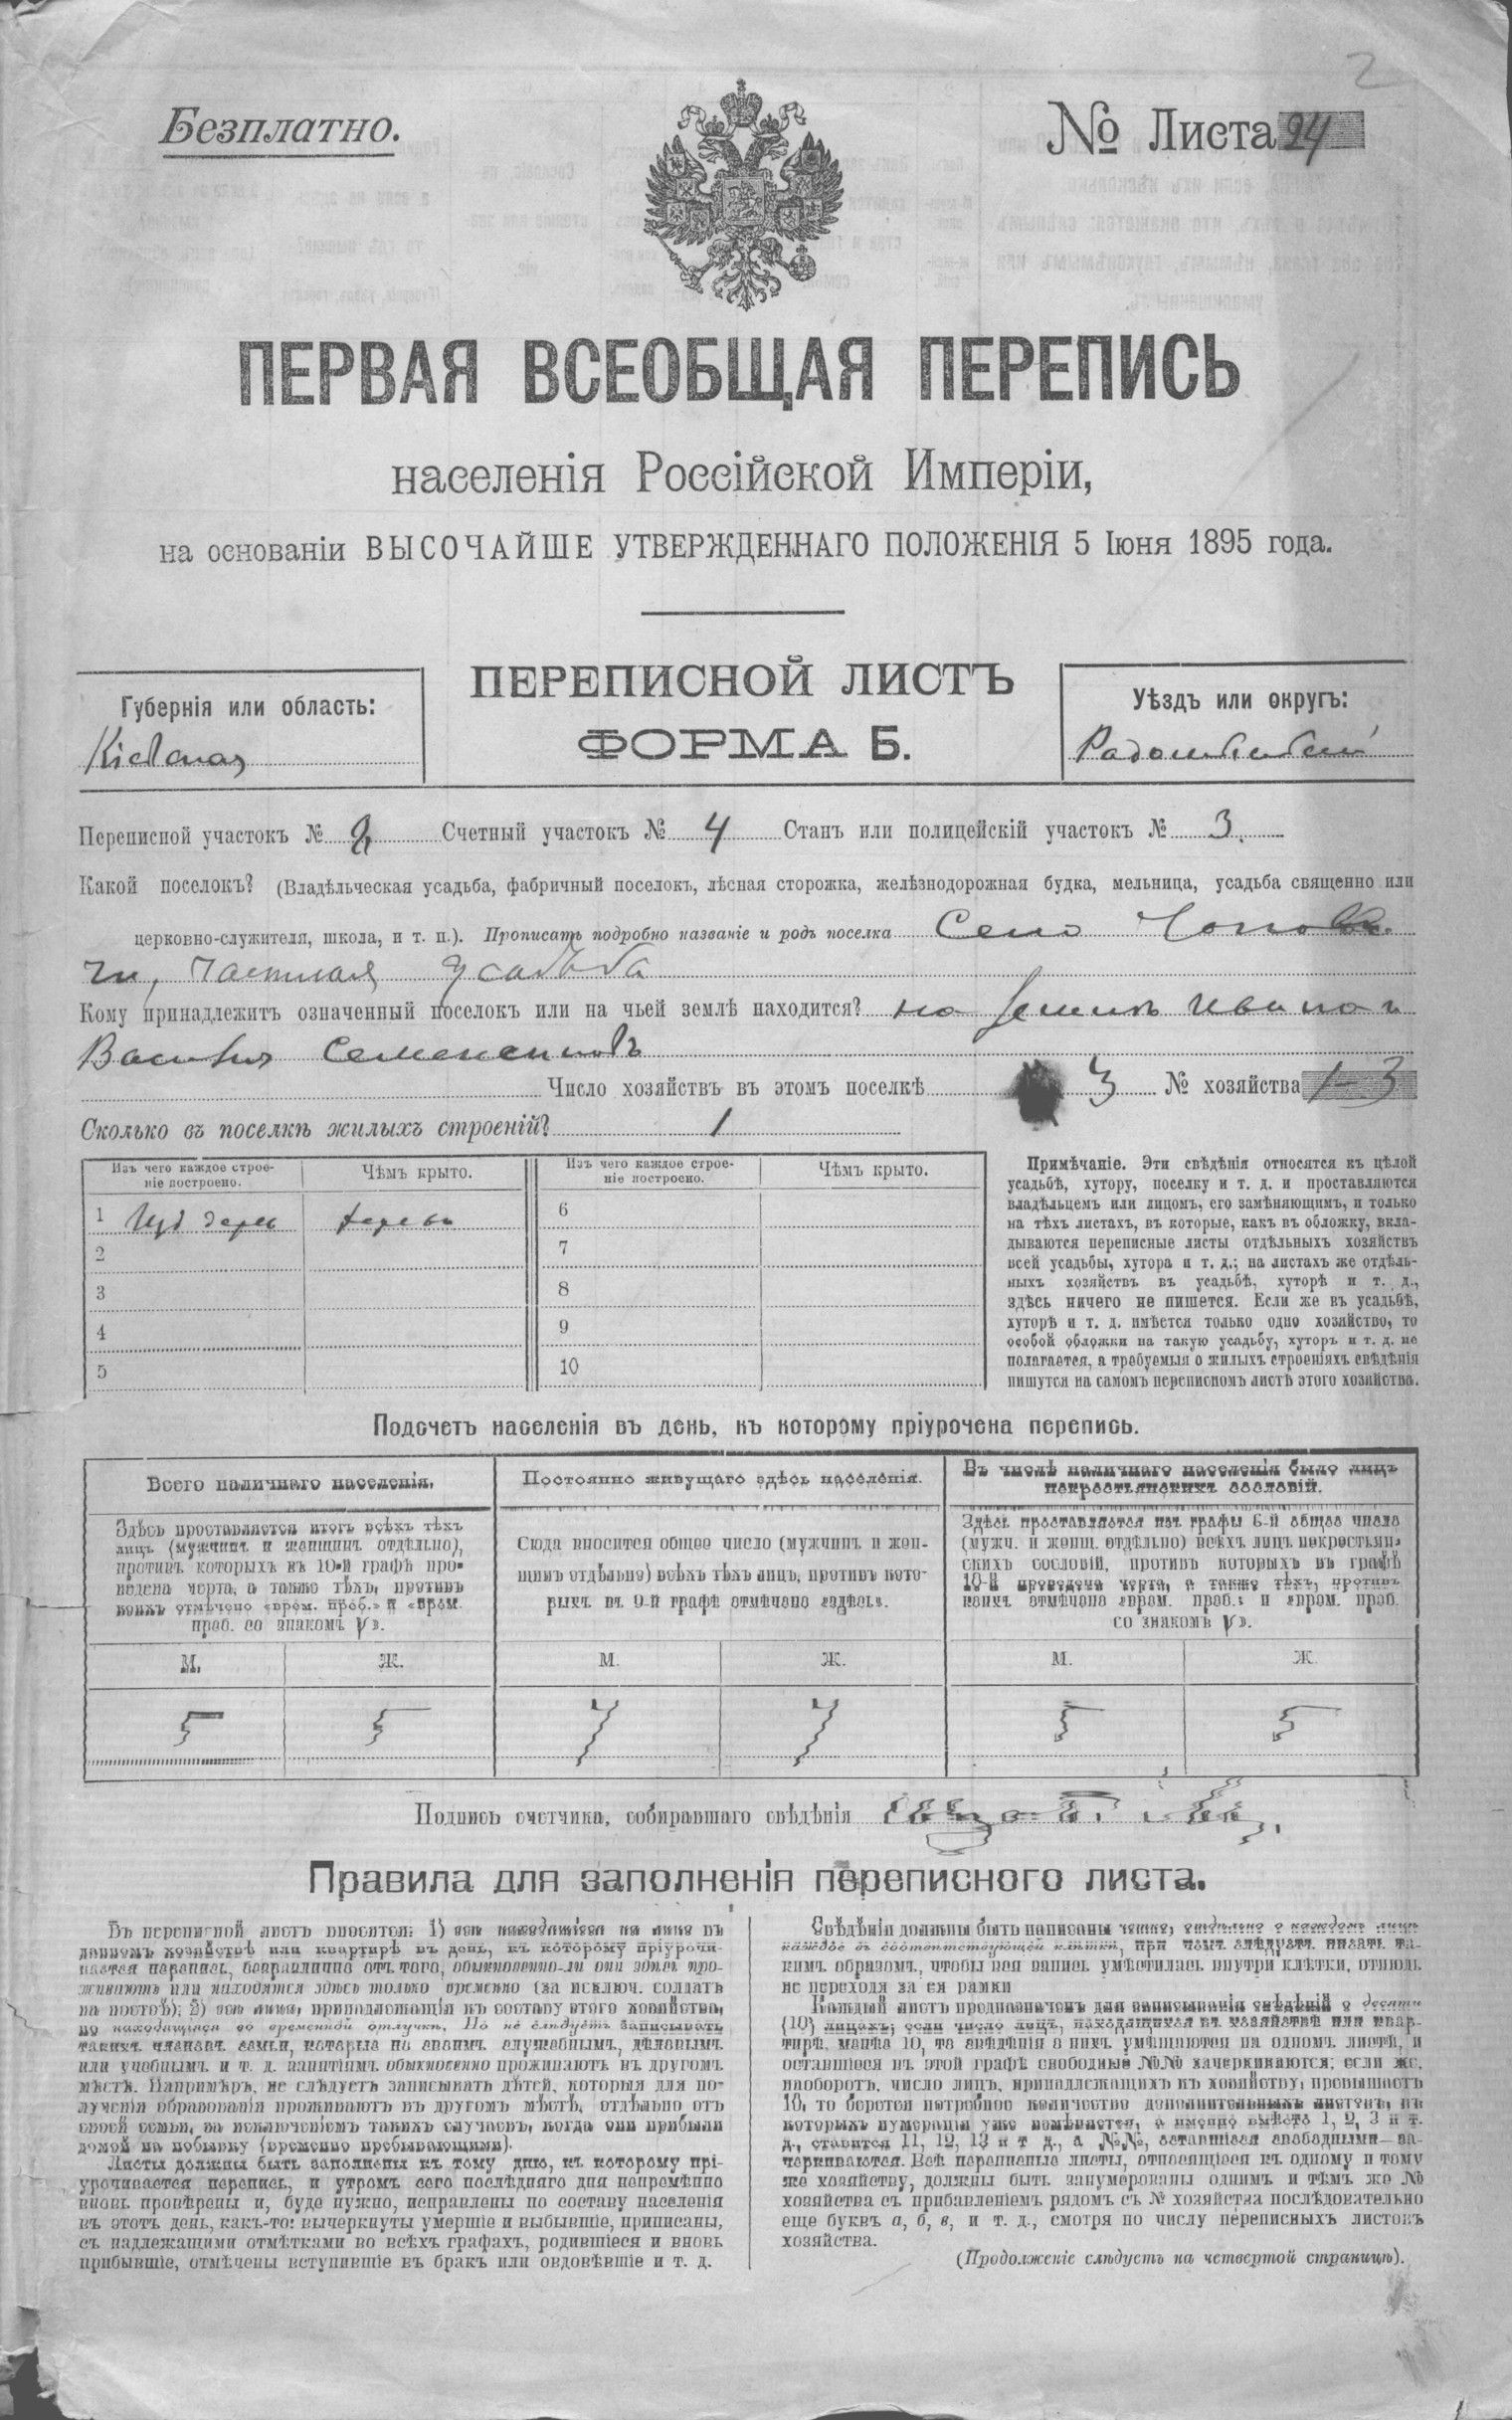 2
Безплатно.
№ Листа 24
ПЕРВАЯ ВСЕОБЩАЯ ПЕРЕПИСЬ
населенія Россійской Имперіи,
на основаніи ВЫСОЧАЙШЕ УТВЕРЖДЕННАГО ПОЛОЖЕНІЯ 5 Іюня 1895 года.
ПЕРЕПИСНОЙ ЛИСТЪ
ФОРМА Б.
Губернія или область:
Кіевская
Уѣздъ или округъ:
Радомысльскій
Переписной участокъ № 2 Счетный участокъ № 4 Станъ или полицейскій участокъ № 3.
Какой поселокъ? (Владѣльческая усадьба, фабричный поселокъ, лѣсная сторожка, желѣзнодорожная будка, мельница, усадьба священно или
церковно-служителя, школа, и т. п.). Прописать подробно названіе и родъ поселка Село
чи, частная усадьба
Кому принадлежитъ означенный поселокъ или на чьей землѣ находится? на земли Ивана и
Василія
Число хозяйствъ въ этомъ поселкѣ 3 № хозяйства 1-3
Сколько въ поселкѣ жилыхъ строеній? 1
Изъ чего каждое строе-
ніе построено.
Чѣмъ крыто.
Изъ чего каждое строе-
ніе построено.
Чѣмъ крыто.
1 Изъ дерев
6
2
7
3
8
4
9
5
10
Примѣчаніе. Эти свѣдѣнія относятся къ цѣлой
усадьбѣ, хутору, поселку и т. д. и проставляются
владѣльцемъ или лицомъ, его замѣняющимъ, и только
на тѣхъ листахъ, въ которые, какъ въ обложку, вкла-
дываются переписные листы отдѣльныхъ хозяйствъ
всей усадьбы, хутора и т. д.; на листахъ же отдѣль-
ныхъ хозяйствъ въ усадьбѣ, хуторѣ и т. д.,
здѣсь ничего не пишется. Если же въ усадьбѣ,
хуторѣ и т. д. имѣется только одно хозяйство, то
особой обложки на такую усадьбу, хуторъ и т. д. не
полагается, а требуемыя о жилыхъ строеніяхъ свѣдѣнія
пишутся на самомъ переписномъ листѣ этого хозяйства.
Подсчетъ населенія въ день, къ которому пріурочена перепись.
Всего наличнаго населенія.
Постоянно живущаго здѣсь населенія.
Въ числѣ наличнаго населенія было лицъ
некрестьянскихъ сословій.
Здѣсь проставляется итогъ всѣхъ тѣхъ
лицъ (мужчинъ и женщинъ отдѣльно),
противъ которыхъ въ 10-й графѣ про-
ведена черта, а также тѣхъ, противъ
коихъ отмѣчено «врем. преб.» и «врем.
преб. со знакомъ V».
Сюда вносится общее число (мужчинъ и жен-
щинъ отдѣльно) всѣхъ тѣхъ лицъ, противъ кото-
рыхъ въ 9-й графѣ отмѣчено «здѣсь».
Здѣсь проставляется изъ графы 6-й общее число
(мужч. и женщ. отдѣльно) всѣхъ лицъ некрестьян-
скихъ сословій, противъ которыхъ въ графѣ
10-й проведена черта, а также тѣхъ, противъ
коихъ отмѣчено «врем. преб.» и «врем. преб.
со знакомъ V».
М. Ж. М. Ж. М. Ж.
5 5 7 7 5 5
Подпись счетчика, собиравшаго свѣдѣнія
Правила для заполненія переписного листа.
Въ переписной листъ вносятся: 1) всѣ находящіеся на лицо въ
данномъ хозяйствѣ или квартирѣ въ день, къ которому пріурочи-
вается перепись, безразлично отъ того, обыкновенно-ли они здѣсь про-
живаютъ или находятся здѣсь только временно (за исключ. солдатъ
на постоѣ); 2) всѣ лица, принадлежащія къ составу этого хозяйства,
но находящіяся во временной отлучкѣ. Но не слѣдуетъ записывать
такихъ членовъ семьи, которые по своимъ служебнымъ, дѣловымъ
или учебнымъ и т. д. занятіямъ обыкновенно проживаютъ въ другомъ
мѣстѣ. Напримѣръ, не слѣдуетъ записывать дѣтей, которыя для по-
лученія образованія проживаютъ въ другомъ мѣстѣ, отдѣльно отъ
своей семьи, за исключеніемъ такихъ случаевъ, когда они прибыли
домой на побывку (временно пребывающими).
Листы должны быть заполнены къ тому дню, къ которому прі-
урочивается перепись, и утромъ сего послѣдняго дня непремѣнно
вновь провѣрены и, буде нужно, исправлены по составу населенія
въ этотъ день, какъ-то: вычеркнуты умершіе и выбывшіе, приписаны,
съ надлежащими отмѣтками во всѣхъ графахъ, родившіеся и вновь
прибывшіе, отмѣчены вступившіе въ бракъ или овдовѣвшіе и т. д.
Свѣдѣнія должны быть написаны четко, отдѣльно о каждомъ лицѣ
каждое въ соотвѣтствующей клѣткѣ, при чемъ слѣдуетъ писать та-
кимъ образомъ, чтобы вся запись умѣстилась внутри клѣтки, отнюдь
не переходя за ея рамки
Каждый листъ предназначенъ для записыванія свѣдѣній о десяти
(10) лицахъ; если число лицъ, находящихся въ хозяйствѣ или квар-
тирѣ, менѣе 10, то свѣдѣнія о нихъ умѣщаются на одномъ листѣ, и
оставшіеся въ этой графѣ свободные №№ зачеркиваются; если же,
наоборотъ, число лицъ, принадлежащихъ къ хозяйству, превышаетъ
10, то берется потребное количество дополнительныхъ листовъ, въ
которыхъ нумерація уже измѣняется, а именно вмѣсто 1, 2, 3 и т.
д., ставится 11, 12, 13 и т д., а №№, оставшіеся свободными—за-
черкиваются. Всѣ переписные листы, относящіеся къ одному и тому
же хозяйству, должны быть занумерованы однимъ и тѣмъ же №
хозяйства съ прибавленіемъ рядомъ съ № хозяйства послѣдовательно
еще буквъ а, б, в, и т. д., смотря по числу переписныхъ листовъ
хозяйства.
(Продолженіе слѣдуетъ на четвертой страницѣ).